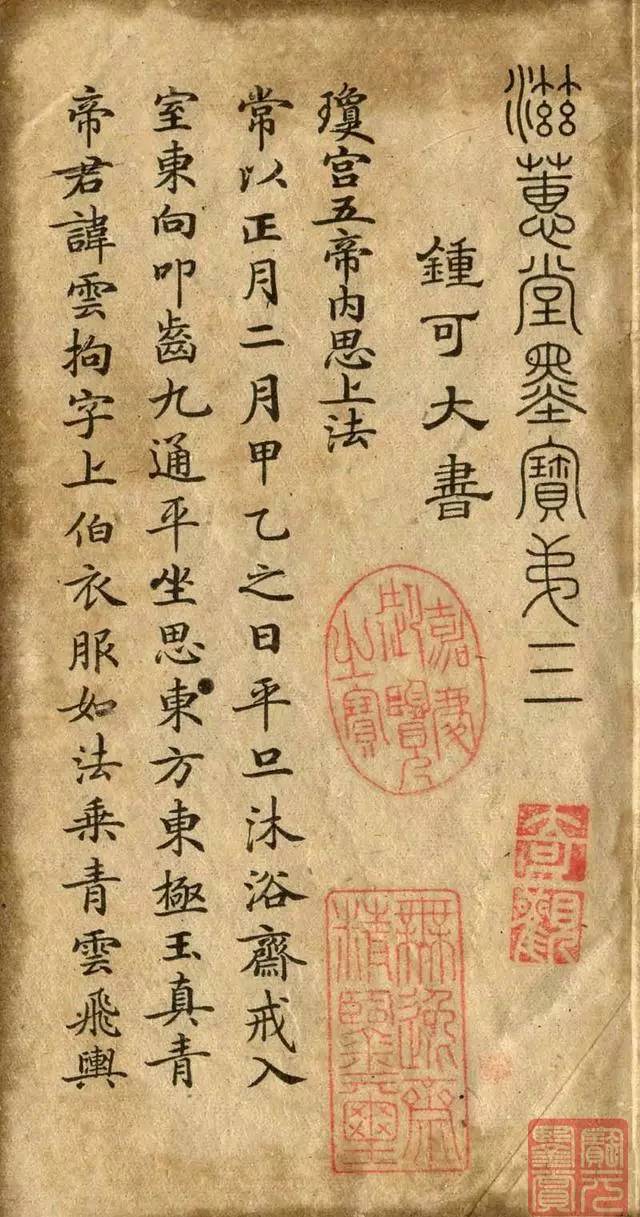 滋蕙堂墨寶弟三
鍾可大書
瓊宫五帝内思上法
常以正月二月甲乙之日平旦沐浴齋戒入
室東向叩齒九通平坐思東方東極玉真青
帝君諱雲拘字上伯衣服如法乘青雲飛輿
嘉慶御覽之寶
奇觀
無逸齋精鑒璽